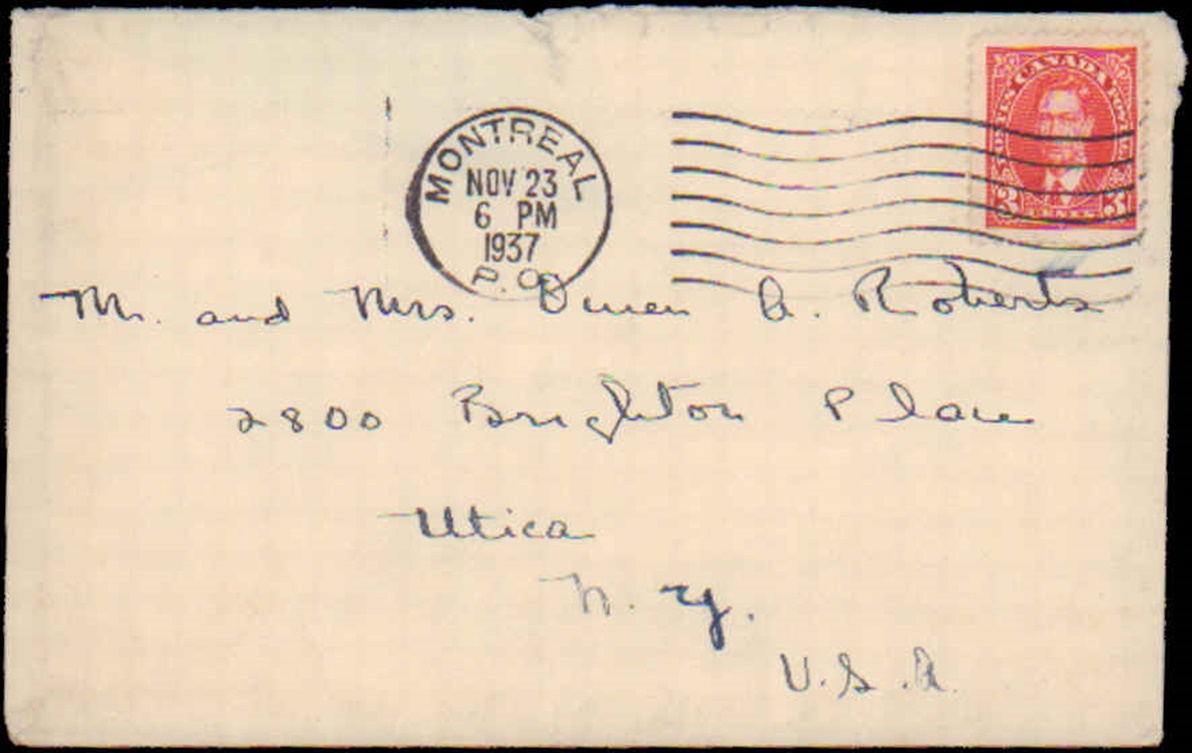 POSTES CANADA POSTAGE
3 CENTS 3
MONTREAL
NOV 23
6 PM
1937
P.Q.
Mr. and Mrs. Owen A. Roberts
2800 Brighton Place
Utica
N. Y.
U.S.A.